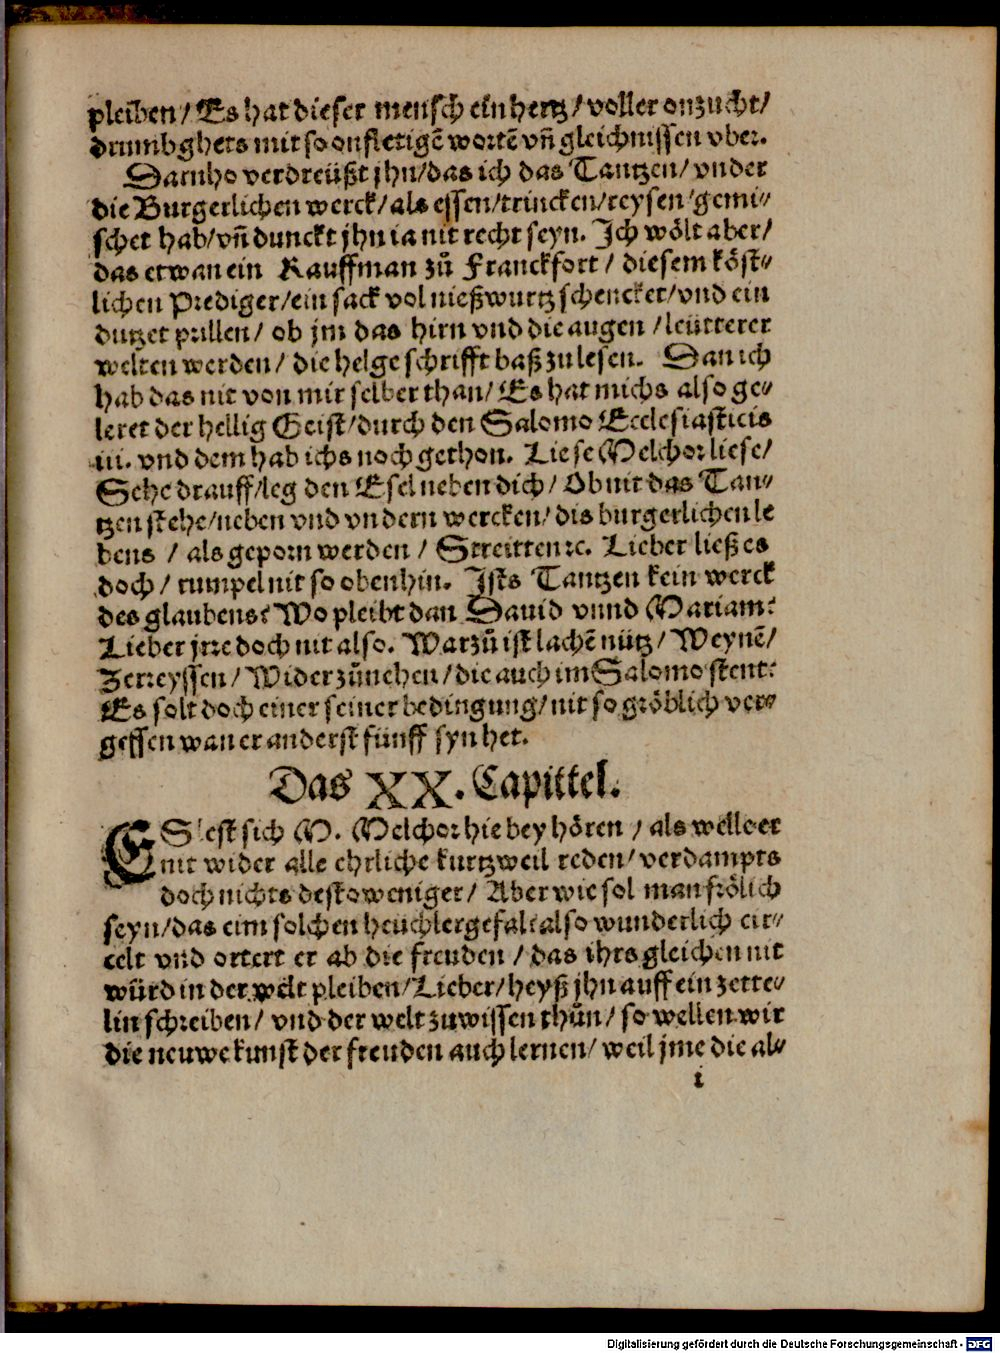 pleiben / Es hat dieser mensch ein hertz / voller onzucht /
drumb ghets mit so onfletigē wortē vñ gleichnissen vber.
Darnho verdreüßt jhn / das ich das Tantzen / vnder
die Burgerlichen werck / als essen / trincken / reysen / gemi⸗
schet hab / vñ dunckt jhn ia nit recht seyn. Ich wölt aber /
das etwan ein Kauffman zů Franckfort / diesem köst⸗
lichen Prediger / ein sack vol nießwurtz schencket / vnd ein
dutzet prillen / ob jm das hirn vnd die augen / leütterer
welten werden / die helge schrifft baß zu lesen. Dan ich
hab das nit von mir selber than / Es hat michs also ge⸗
leret der heilig Geist / durch den Salomo Ecclesiasticis
iii. vnd dem hab ichs noch gethon. Liese Melchor liese /
Sehe drauff / leg den Esel neben dich / Ob nit das Tan⸗
tzen stehe / neben vnd vndern wercken / dis burgerlichen le
bens / als geporn werden / Streitten ꝛc. Lieber ließ es
doch / rumpel nit so obenhin. Ists Tantzen kein werck
des glaubens? Wo pleibt dan Dauid vnnd Mariam?
Lieber jrre doch nit also. Warzů ist lachē nütz / Weynē /
Zerreyssen / Wider zůnehen / die auch im Salomo stent?
Es solt doch einer seiner bedingung / nit so gröblich ver⸗
gessen wan er anderst fünff syn het.
Das XX. Capittel.
ES lest sich M. Melchor hie bey hören / als welle er
nit wider alle ehrliche kurtzweil reden / verdampts
doch nichts desto weniger / Aber wie sol man frölich
seyn / das eim solchen heuchler gefalt also wunderlich cir⸗
celt vnd ortert er ab die freuden / das ihrs gleichen nit
würd in der welt pleiben / Lieber / heyß jhn auff ein zette⸗
lin schreiben / vnd der welt zuwissen thůn / so wellen wir
die neuwe kunst der freuden auch lernen / weil jme die al⸗
i
Digitalisierung gefördert durch die Deutsche Forschungsgemeinschaft - DFG